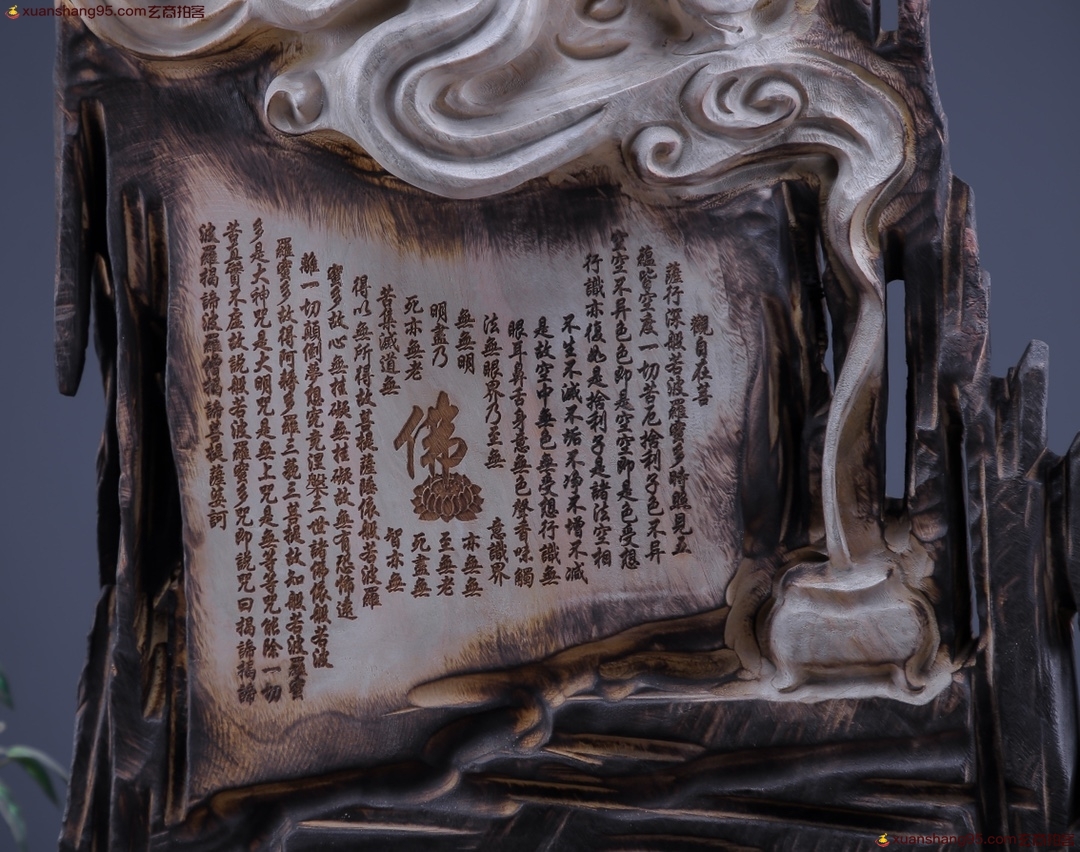 xuanshang95.com玄商拍客
觀自在菩
薩行深般若波羅蜜多時照見五
蘊皆空度一切苦厄捨利子色不异
空空不异色色即是空空即是色受想
行識亦復如是捨利子是諸法空相
不生不滅不垢不净不增不减
是故空中無色無受想行識無
眼耳鼻舌身意無色聲香味觸
法無眼界乃至無 意識界
無無明 亦無無
明盡乃 至無老
死亦無老 死盡無
苦集滅道無 智亦無
佛
得以無所得故菩提薩陲依般若波羅
蜜多故心無挂礙無挂礙故無有恐怖遠
離一切顛倒夢想究竟涅槃三世諸佛依般若波
羅蜜多故得阿耨多羅三藐三菩提故知般若波羅蜜
多是大神咒是大明咒是無上咒是無等等咒能除一切
苦真實不虛故說般若波羅蜜多咒即說咒曰揭諦揭諦
波羅揭諦波羅僧揭諦菩提薩婆訶
xuanshang95.com玄商拍客